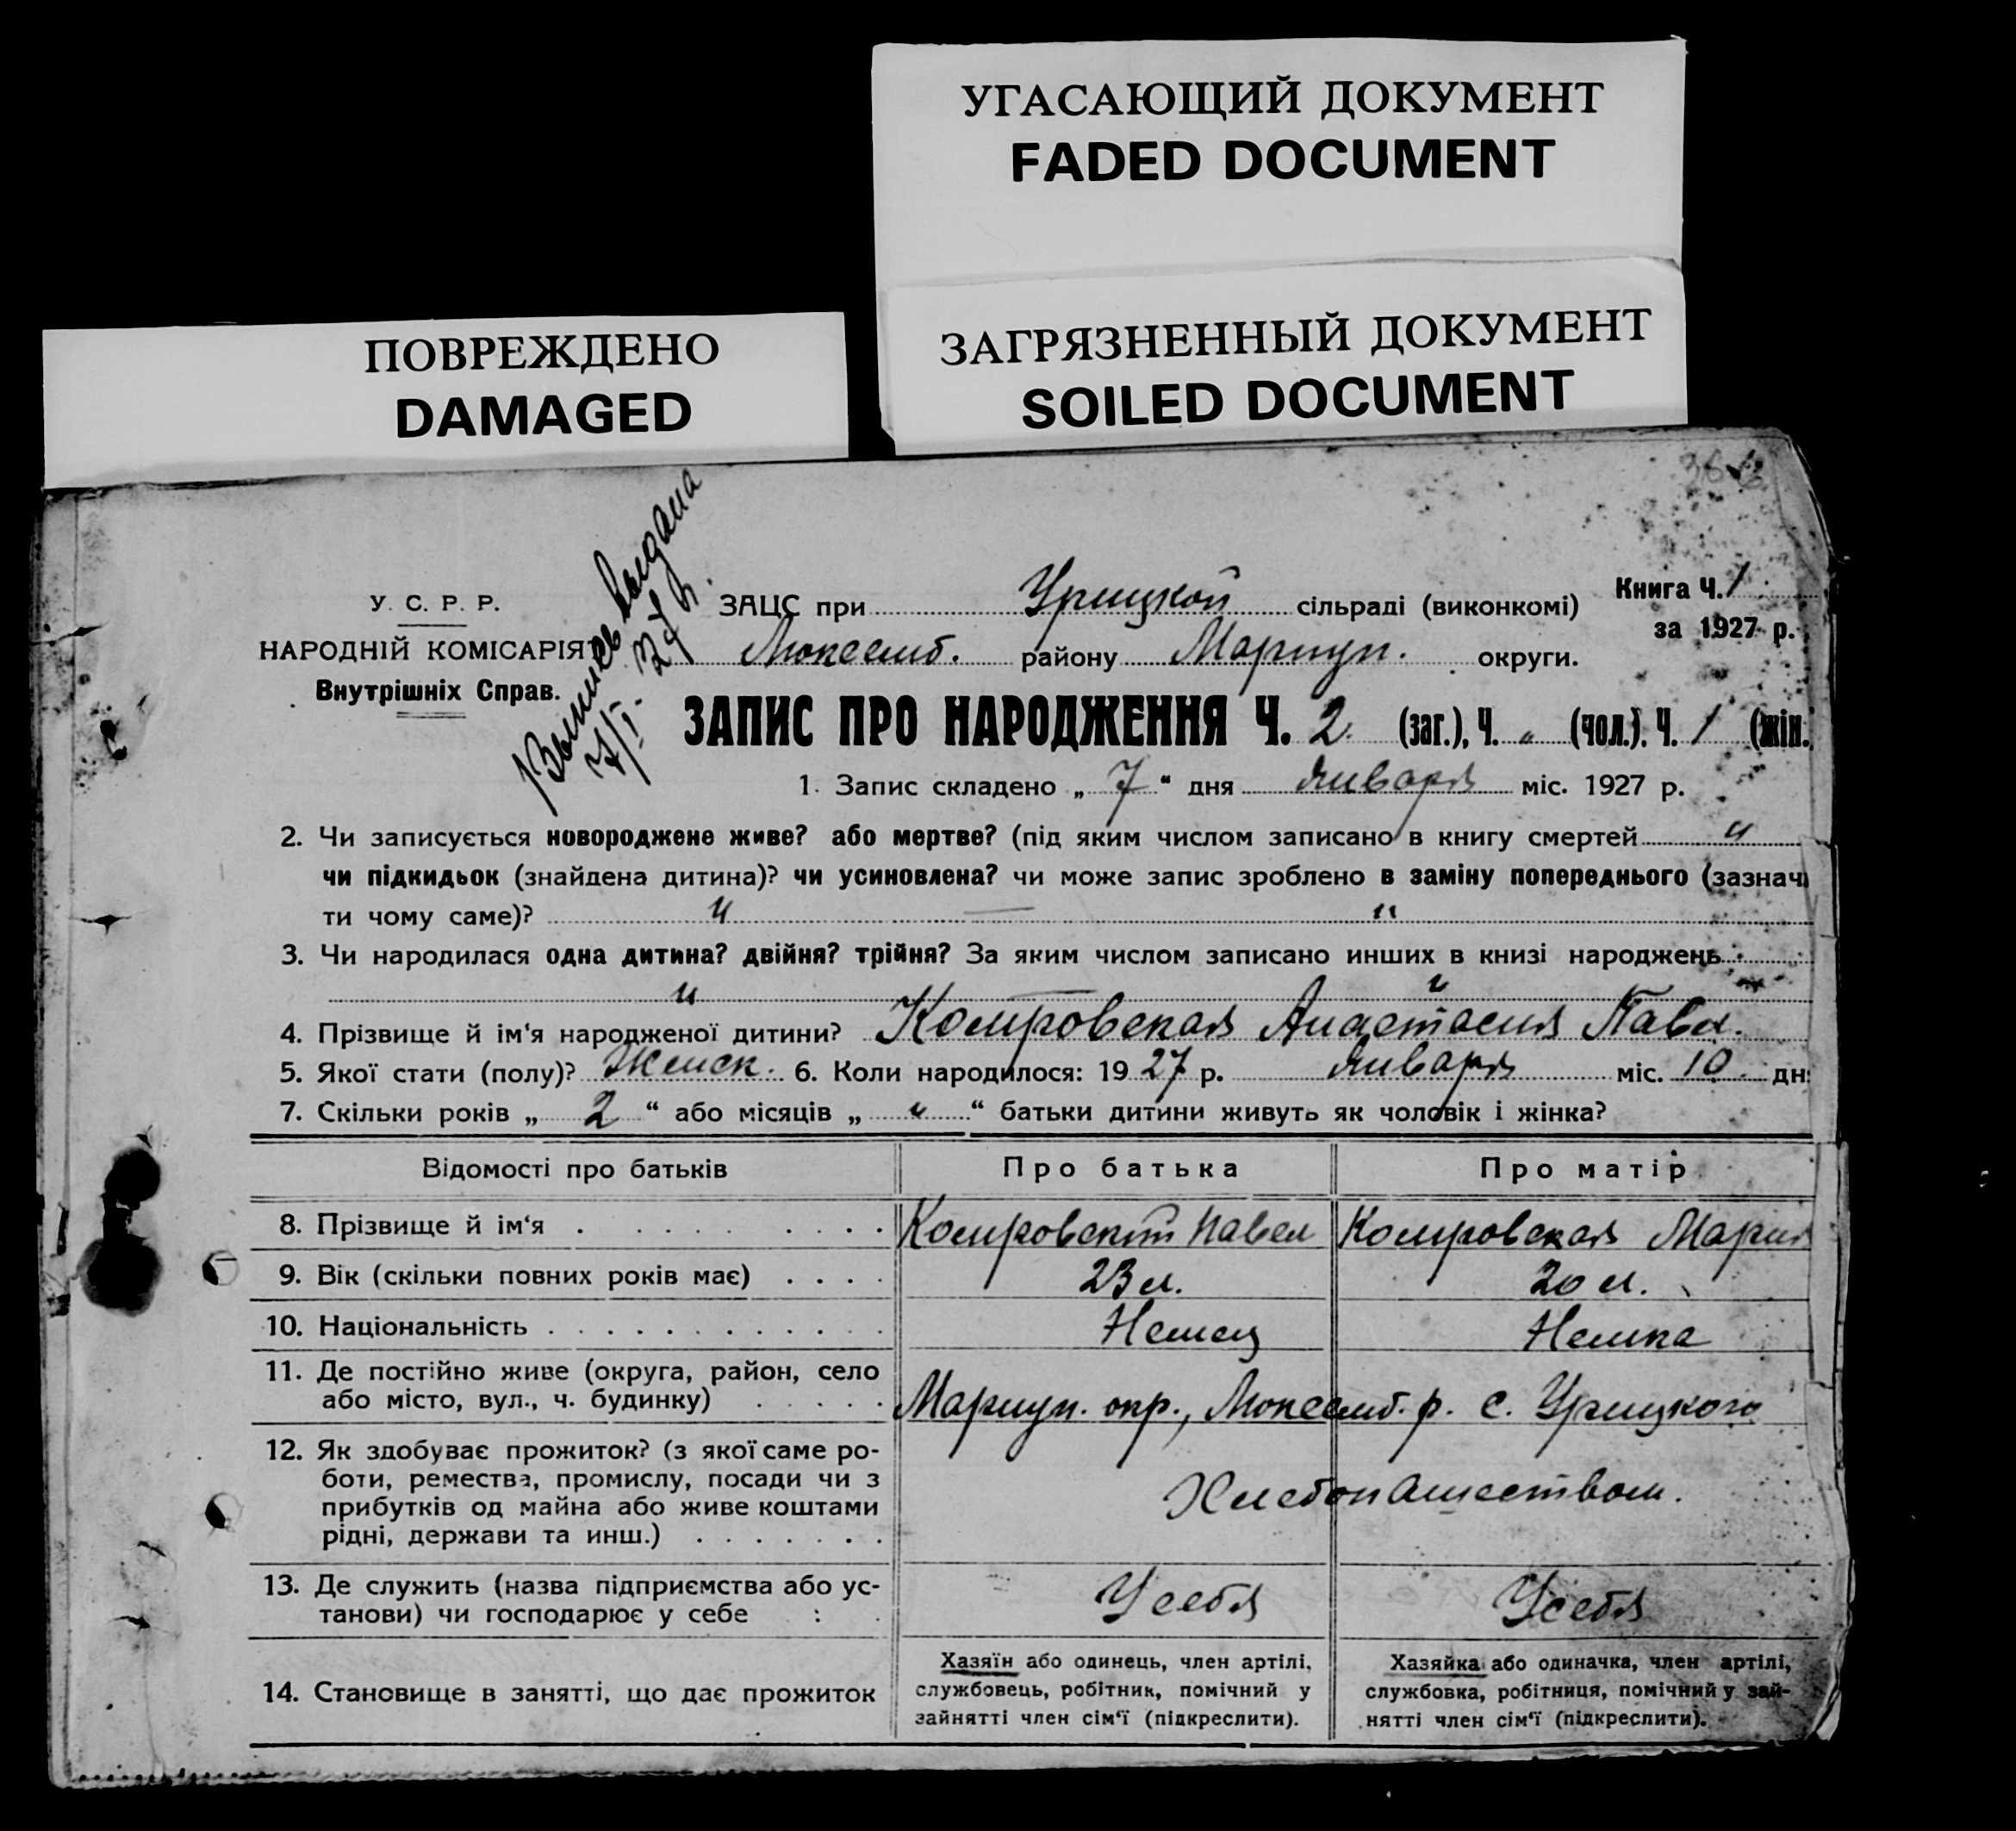 УГАСАЮЩИЙ ДОКУМЕНТ
FADED DOCUMENT
ЗАГРЯЗНЕННЫЙ ДОКУМЕНТ
SOILED DOCUMENT
ПОВРЕЖДЕНО
DAMAGED
Выпись выдана
7/I-27 г.
У. С. Р. Р.
НАРОДНІЙ КОМІСАРІЯТ
Внутрішніх Справ.
ЗАЦС при Урицкой сільраді (виконкомі)
Люксемб. району Мариуп. округи.
Книга Ч. 1
за 1927 р.
ЗАПИС ПРО НАРОДЖЕННЯ Ч. 2 (заг.), Ч. „ (чол.). Ч. 1 (жін.
1. Запис складено „ 7 “ дня января міс. 1927 р.
2. Чи записується новороджене живе? або мертве? (під яким числом записано в книгу смертей "
чи підкидьок (знайдена дитина)? чи усиновлена? чи може запис зроблено в заміну попереднього (зазначи
ти чому саме)? " — "
3. Чи народилася одна дитина? двійня? трійня? За яким числом записано инших в книзі народжень
" "
4. Прізвище й ім‘я народженої дитини? Комровская Анастасия Павл.
5. Якої стати (полу)? Женск. 6. Коли народилося: 1927 р. января міс. 10 дн.
7. Скільки років „ 2 “ або місяців „ " “ батьки дитини живуть як чоловік і жінка?
Відомості про батьків Про батька Про матір
8. Прізвище й ім‘я Комровский Павел Комровская Мария
9. Вік (скільки повних років має) 23 л. 20 л.
10. Національність Немец Немка
11. Де постійно живе (округа, район, село
або місто, вул., ч. будинку) Мариуп. окр., Люксемб. р. с. Урицкого
12. Як здобуває прожиток? (з якої саме ро-
боти, ремества, промислу, посади чи з
прибутків од майна або живе коштами
рідні, держави та инш.)
Хлебопашеством.
13. Де служить (назва підприємства або ус-
танови) чи господарює у себе : У себя У себя
14. Становище в занятті, що дає прожиток
Хазяїн або одинець, член артілі,
службовець, робітник, помічний у
зайнятті член сім‘ї (підкреслити).
Хазяйка або одиначка, член артілі,
службовка, робітниця, помічний у зай-
нятті член сім‘ї (підкреслити).